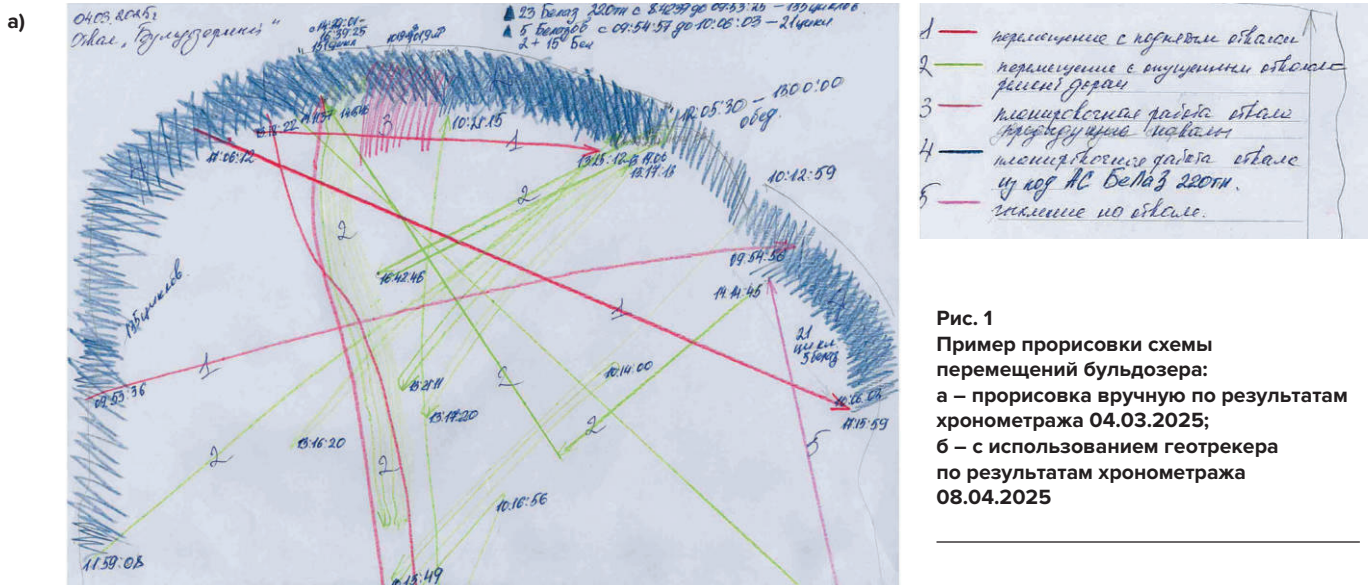 а)
04.03.2025г
Отвал „Бульдозерный"
14:27:01-
16:39:25
▲ 23 Белаз 220тн с 8:42:39 до 09:53:25 – 135 циклов
▲ 5 Белазов с 09:54:57 до 10:06:03 – 21 цикл
12:05:30 – 13:00:00
обед.
3
10:28:15
1
13:18:22
17:06:12
13:25:12
15:17:13
10:12:59
2
2
16:42:46
09:54:56
14:14:45
135 циклов
1
1
4
21
цикл
5 белаз
09:53:36
13:21:11
2
10:14:00
13:17:20
10:06:03
17:15:59
13:16:20
2
2
2
5
10:16:56
11:59:08
1 — перемещение с поднятым отвалом
2 — перемещение с опущенным отвалом
ремонт дороги
3 — планировочная работа отвала
предыдущие навалы
4 — планировочная работа отвала
из под АС БелАЗ 220тн.
5
Рис. 1
Пример прорисовки схемы
перемещений бульдозера:
а – прорисовка вручную по результатам
хронометража 04.03.2025;
б – с использованием геотрекера
по результатам хронометража
08.04.2025